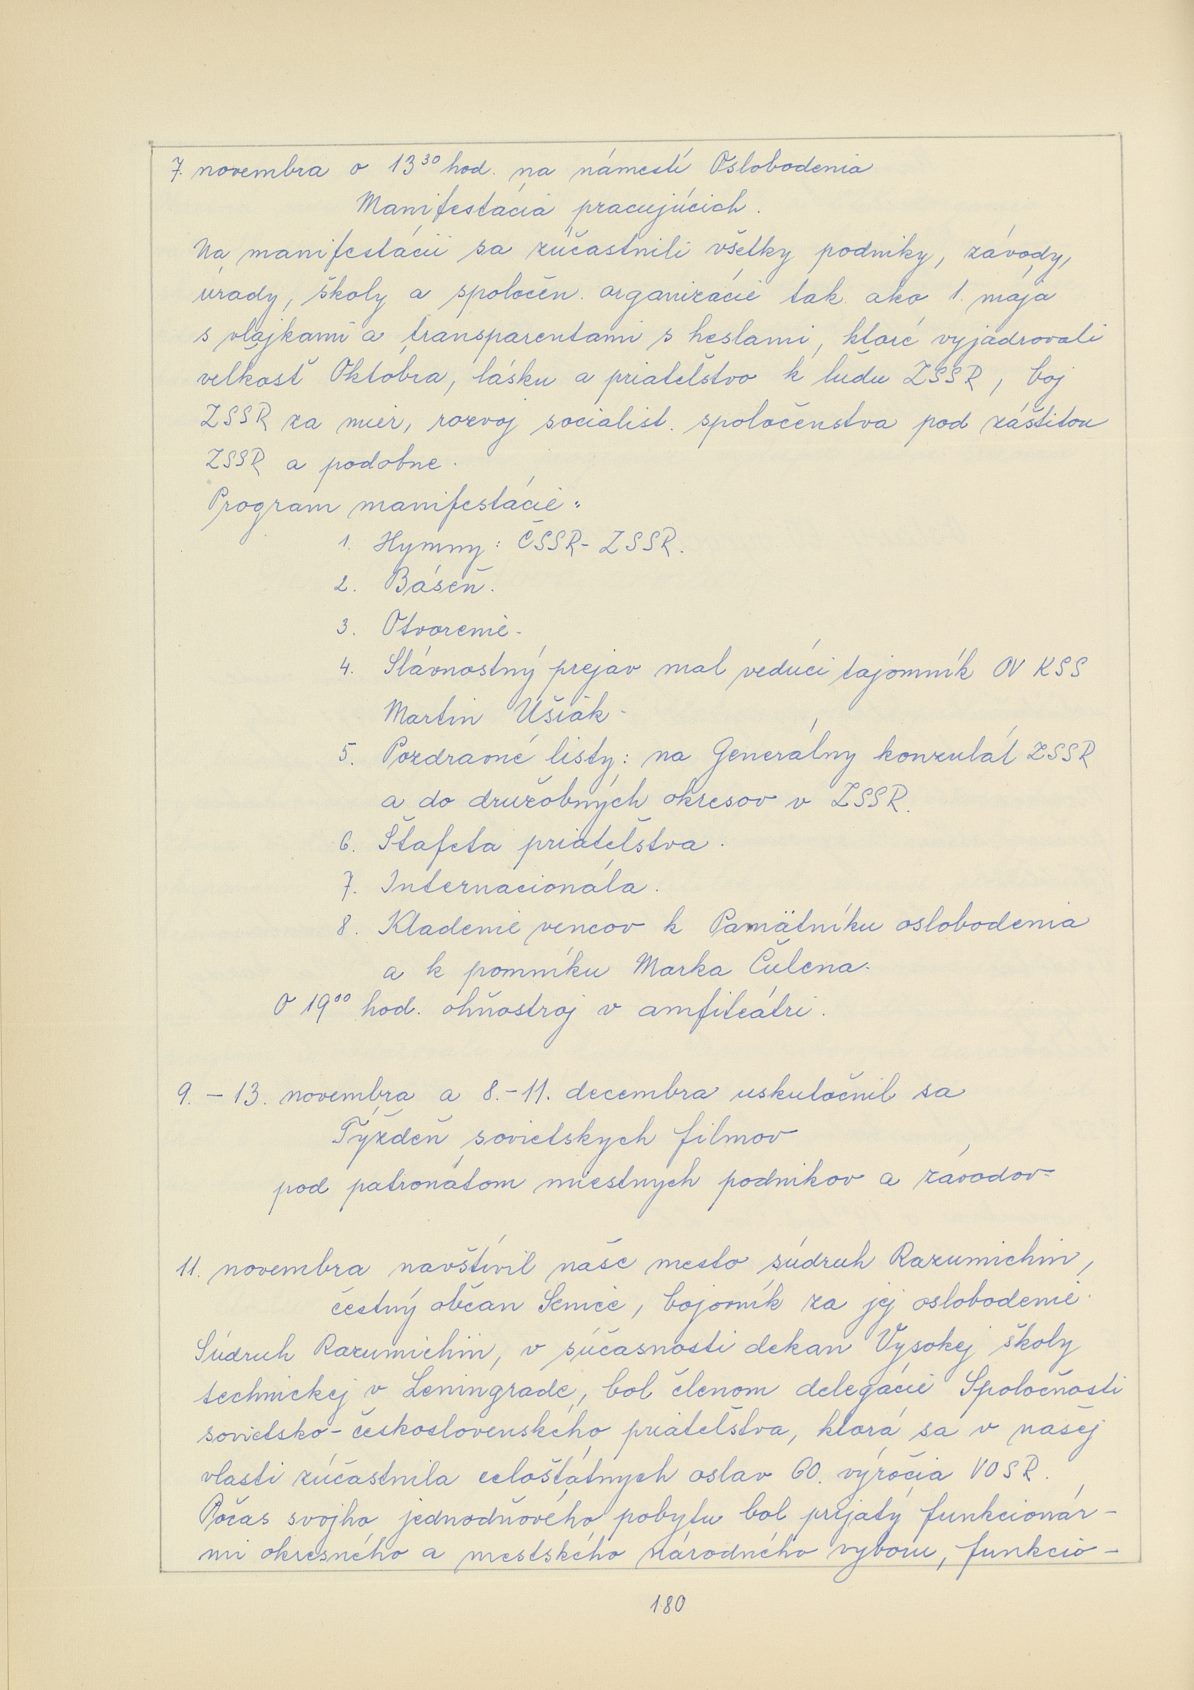 7. novembra o 13³⁰ hod. na námestí Oslobodenia
Manifestácia pracujúcich.
Na manifestácii sa zúčastnili všetky podniky, závody,
úrady, školy a spoločen. organizácie tak ako 1. mája
s vlajkami a transparentami s heslami, ktoré vyjadrovali
veľkosť Októbra, lásku a priateľstvo k ľudu ZSSR, boj
ZSSR za mier, rozvoj socialist. spoločenstva pod záštitou
ZSSR a podobne.
Program manifestácie:
1. Hymny: ČSSR - ZSSR.
2. Báseň.
3. Otvorenie.
4. Slávnostný prejav mal vedúci tajomník OV KSS
Martin Ušiak.
5. Pozdravné listy: na Generálny konzulát ZSSR
a do družobných okresov v ZSSR.
6. Štafeta priateľstva.
7. Internacionála.
8. Kladenie vencov k Pamätníku oslobodenia
a k pomníku Marka Čulena.
O 19⁰⁰ hod. ohňostroj v amfiteátri.
9. - 13. novembra a 8. - 11. decembra uskutočnil sa
Týždeň sovietskych filmov
pod patronátom miestnych podnikov a závodov.
11. novembra navštívil naše mesto súdruh Razumichin,
čestný občan Senice, bojovník za jej oslobodenie.
Súdruh Razumichin, v súčasnosti dekan Vysokej školy
technickej v Leningrade, bol členom delegácie Spoločnosti
sovietsko - československého priateľstva, ktorá sa v našej
vlasti zúčastnila celoštátnych osláv 60. výročia VOSR.
Počas svojho jednodňového pobytu bol prijatý funkcionár-
mi okresného a mestského národného výboru, funkcio-
180